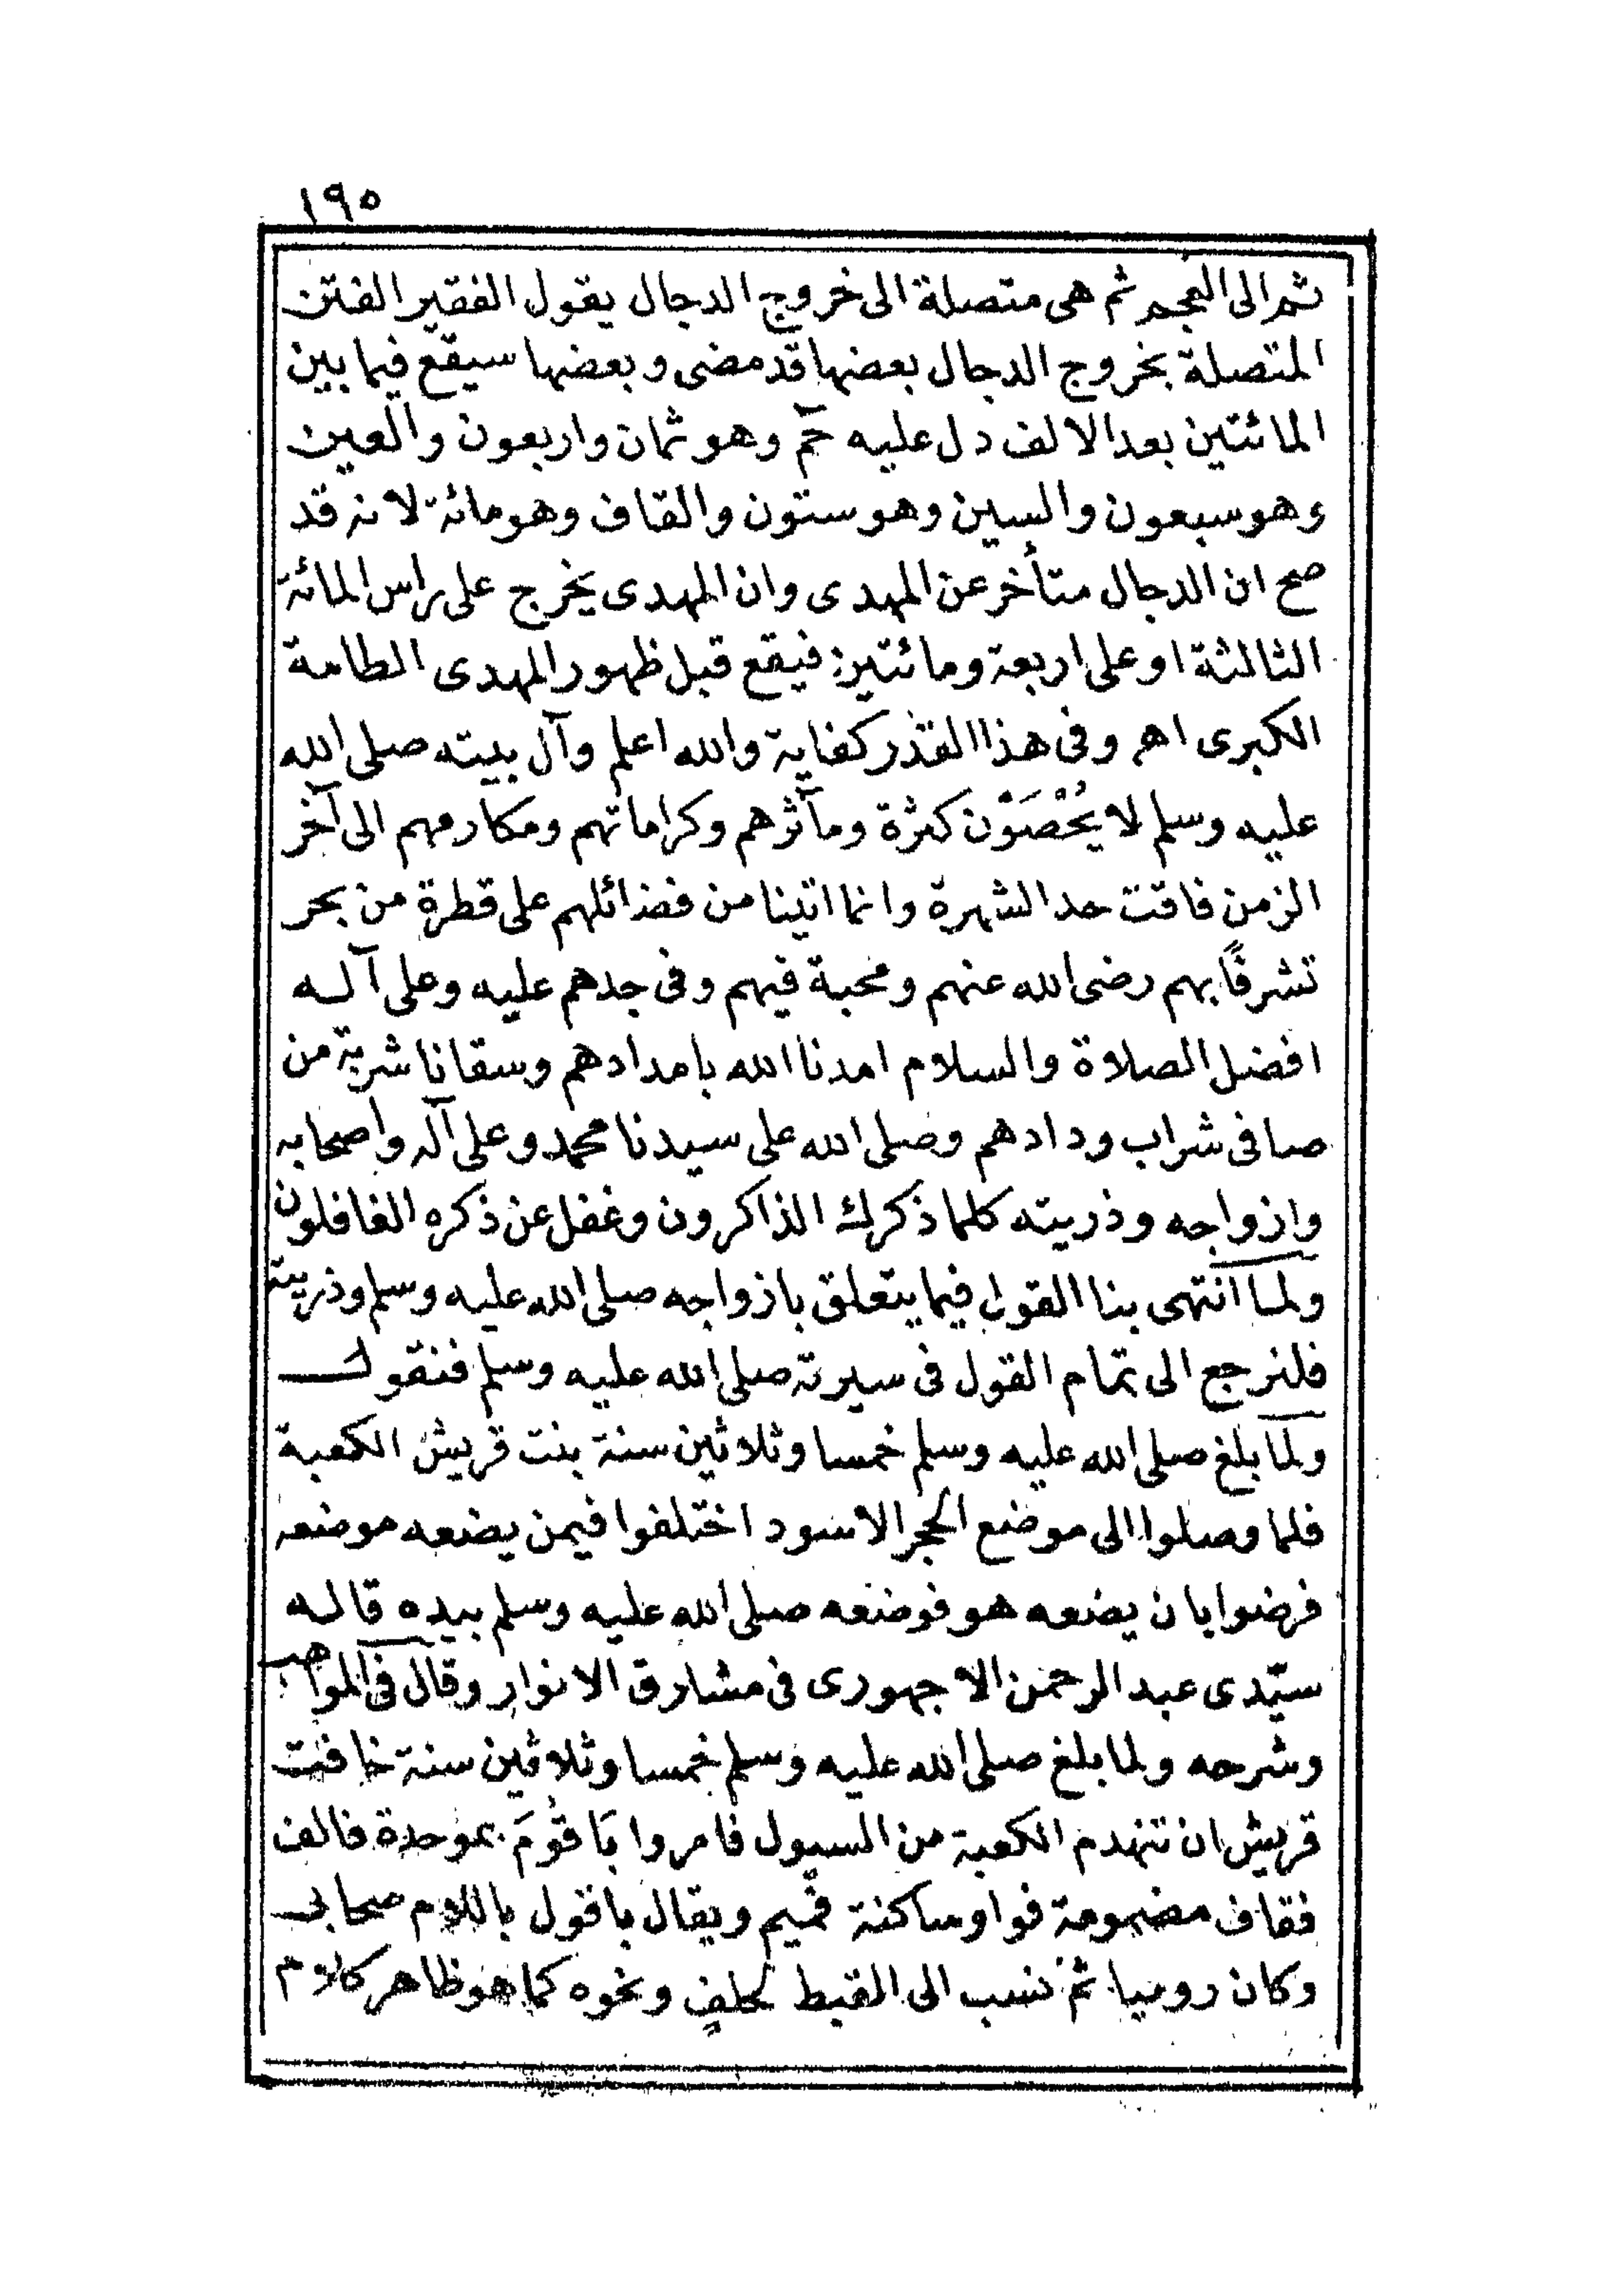 ١٩٥
ثم الى العجم ثم هى متصلة الى خروج الدجال يقول الفقير الفتن
المتصلة بخروج الدجال بعضها قد مضى وبعضها سيقع فيما بين
المائتين بعد الالف دل عليه حٓمٓ وهو ثمان واربعون والعين
وهو سبعون والسين وهو ستون والقاف وهو مائة لانه قد
صح ان الدجال متأخر عن المهدى وان المهدى يخرج على راس المائة
الثالثة او على اربعة ومائتين فيقع قبل ظهور المهدى الطامة
الكبرى اهـ وفى هذا القدر كفاية والله اعلم وآل بيته صلى الله
عليه وسلم لا يُحْصَوْن كثرة ومآثرهم وكراماتهم ومكارمهم الى آخر
الزمن فاقت حد الشهرة وانما اتينا من فضائلهم على قطرة من بحر
تشرفًا بهم رضى الله عنهم ومحبة فيهم وفى جدهم عليه وعلى آله
افضل الصلاة والسلام امدنا الله بامدادهم وسقانا شربة من
صافى شراب ودادهم وصلى الله على سيدنا محمد وعلى آله واصحابه
وازواجه وذريته كلما ذكرك الذاكرون وغفل عن ذكره الغافلون
ولما انتهى بنا القول فيما يتعلق بازواجه صلى الله عليه وسلم وذريته
فلنرجع الى تمام القول فى سيرته صلى الله عليه وسلم فنقول
ولما بلغ صلى الله عليه وسلم خمسا وثلاثين سنة بنت قريش الكعبة
فلما وصلوا الى موضع الحجر الاسود اختلفوا فيمن يضعه موضعه
فرضوا بان يضعه هو فوضعه صلى الله عليه وسلم بيده قاله
سيّدى عبد الرحمن الاجهورى فى مشارق الانوار وقال فى المواهب
وشرحه ولما بلغ صلى الله عليه وسلم خمسا وثلاثين سنة خافت
قريش ان تنهدم الكعبة من السيول فامروا بَاقُومَ بموحدة فالف
فقاف مضمومة فواو ساكنة فميم ويقال باقول باللام صحابى
وكان روميا ثم نسب الى القبط لحلفٍ ونحوه كما هو ظاهر كلام